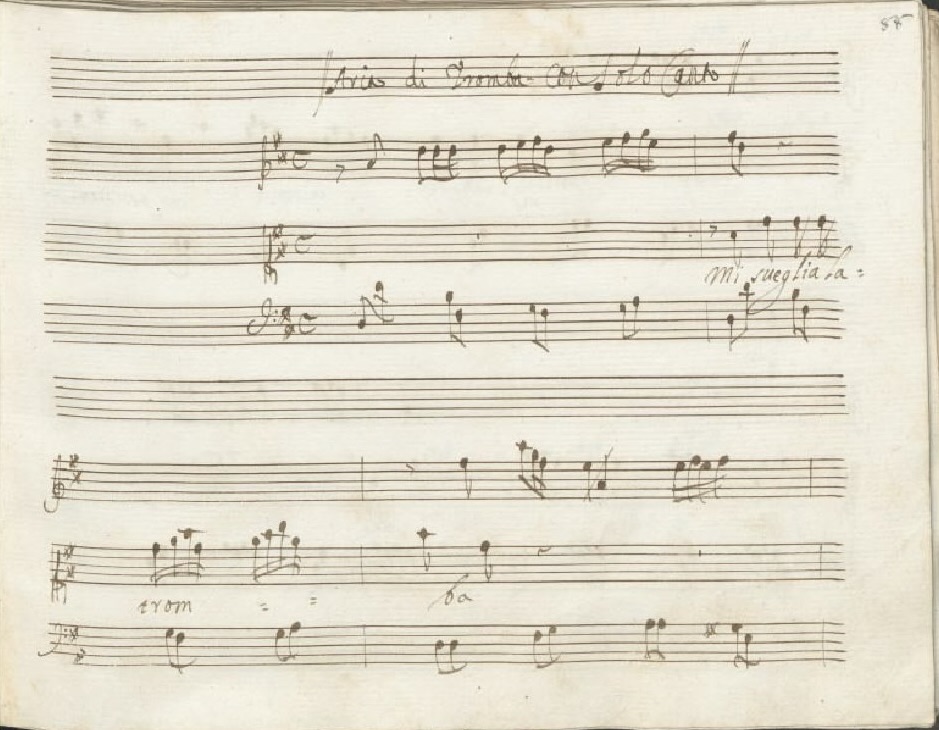 88
Aria di Tromba con Solo Canto
mi sueglia la =
trom = = ba